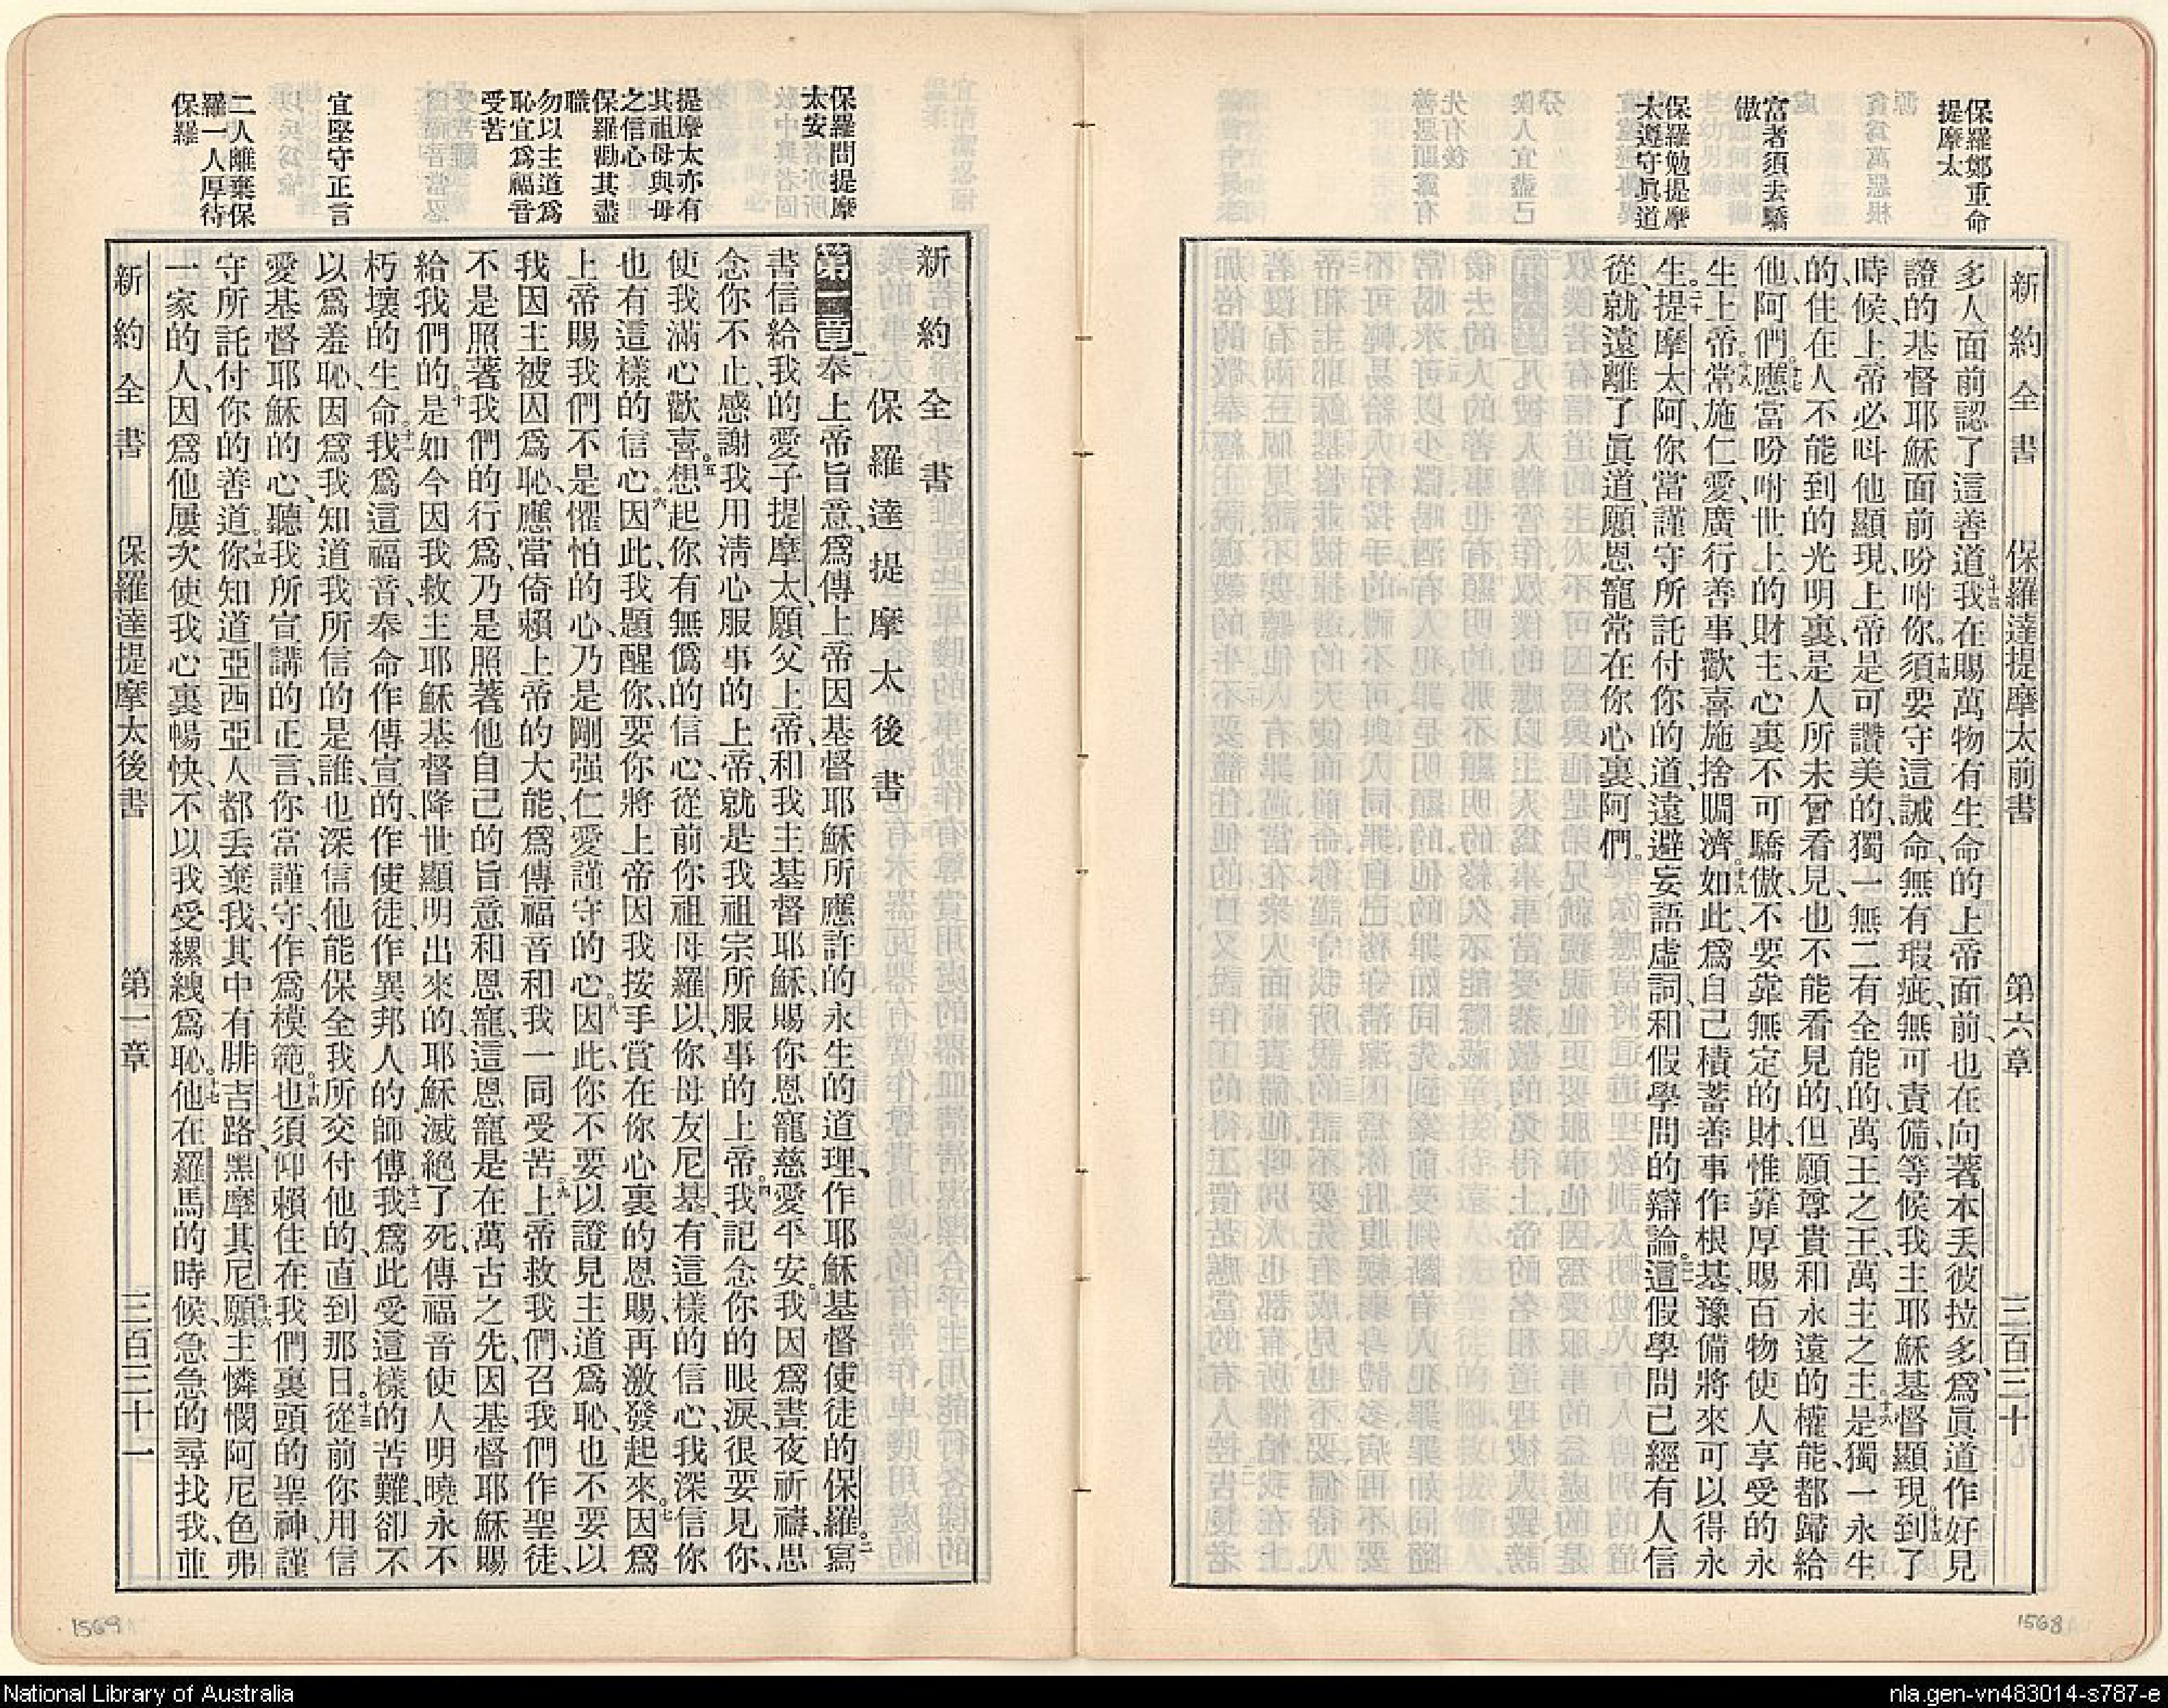 新約全書 保羅達提摩太前書 第六章 三百三十
保羅鄭重命
提摩太
富者須去驕
傲
保羅勉提摩
太遵守眞道
多人面前認了這善道、十三我在賜萬物有生命的上帝面前、也在向著本丢彼拉多、爲眞道作好見
證的基督耶穌面前吩咐你。十四須要守這誡命、無有瑕疵、無可責備、等候我主耶穌基督顯現。十五到了
時候、上帝必呌他顯現、上帝是可讚美的、獨一無二有全能的、萬王之王、萬主之主。十六是獨一永生
的、住在人不能到的光明裏、是人所未曾看見、也不能看見的、但願尊貴和永遠的權能、都歸給
他、阿們。十七應當吩咐世上的財主、心裏不可驕傲、不要靠無定的財、惟靠厚賜百物使人享受的永
生上帝。十八常施仁愛、廣行善事、歡喜施捨賙濟。十九如此、爲自己積蓄善事作根基、豫備將來可以得永
生。二十提摩太阿、你當謹守所託付你的道、遠避妄語虛詞、和假學問的辯論。二一這假學問已經有人信
從、就遠離了眞道、願恩寵常在你心裏、阿們。
新約全書
保羅達提摩太後書
保羅問提摩
太安
提摩太亦有
其祖母與母
之信心
保羅勸其盡
職
勿以主道爲
恥宜爲福音
受苦
宜堅守正言
二人離棄保
羅一人厚待
保羅
第一章一奉上帝旨意、爲傳上帝因基督耶穌所應許的永生的道理、作耶穌基督使徒的保羅。二寫
書信給我的愛子提摩太、願父上帝、和我主基督耶穌、賜你恩寵慈愛平安。三我因爲晝夜祈禱、思
念你不止、感謝我用淸心服事的上帝、就是我祖宗所服事的上帝。四我記念你的眼淚、很要見你、
使我滿心歡喜。五想起你有無僞的信心、從前你祖母羅以、你母友尼基、有這樣的信心、我深信你
也有這樣的信心。六因此、我題醒你、要你將上帝因我按手賞在你心裏的恩賜、再激發起來。七因爲
上帝賜我們、不是懼怕的心、乃是剛强仁愛謹守的心。八因此、你不要以證見主道爲恥、也不要以
我因主被囚爲恥、應當倚賴上帝的大能、爲傳福音和我一同受苦。九上帝救我們、召我們作聖徒、
不是照著我們的行爲、乃是照著他自己的旨意和恩寵、這恩寵是在萬古之先、因基督耶穌賜
給我們的。十是如今因我救主耶穌基督降世顯明出來的、耶穌滅絕了死、傳福音使人明曉永不
朽壞的生命。十一我爲這福音、奉命作傳宣的、作使徒、作異邦人的師傅。十二我爲此受這樣的苦難、卻不
以爲羞恥、因爲我知道我所信的是誰、也深信他能保全我所交付他的、直到那日。十三從前你用信
愛基督耶穌的心、聽我所宣講的正言、你當謹守、作爲模範。十四也須仰賴住在我們裏頭的聖神、謹
守所託付你的善道。十五你知道亞西亞人都丢棄我、其中有腓吉路、黑摩其尼。十六願主憐憫阿尼色弗
一家的人、因爲他屢次使我心裏暢快、不以我受縲絏爲恥。十七他在羅馬的時候、急急的尋找我、並
新約全書 保羅達提摩太後書 第一章 三百三十一
1569
1568
National Library of Australia
nla.gen-vn483014-s787-e